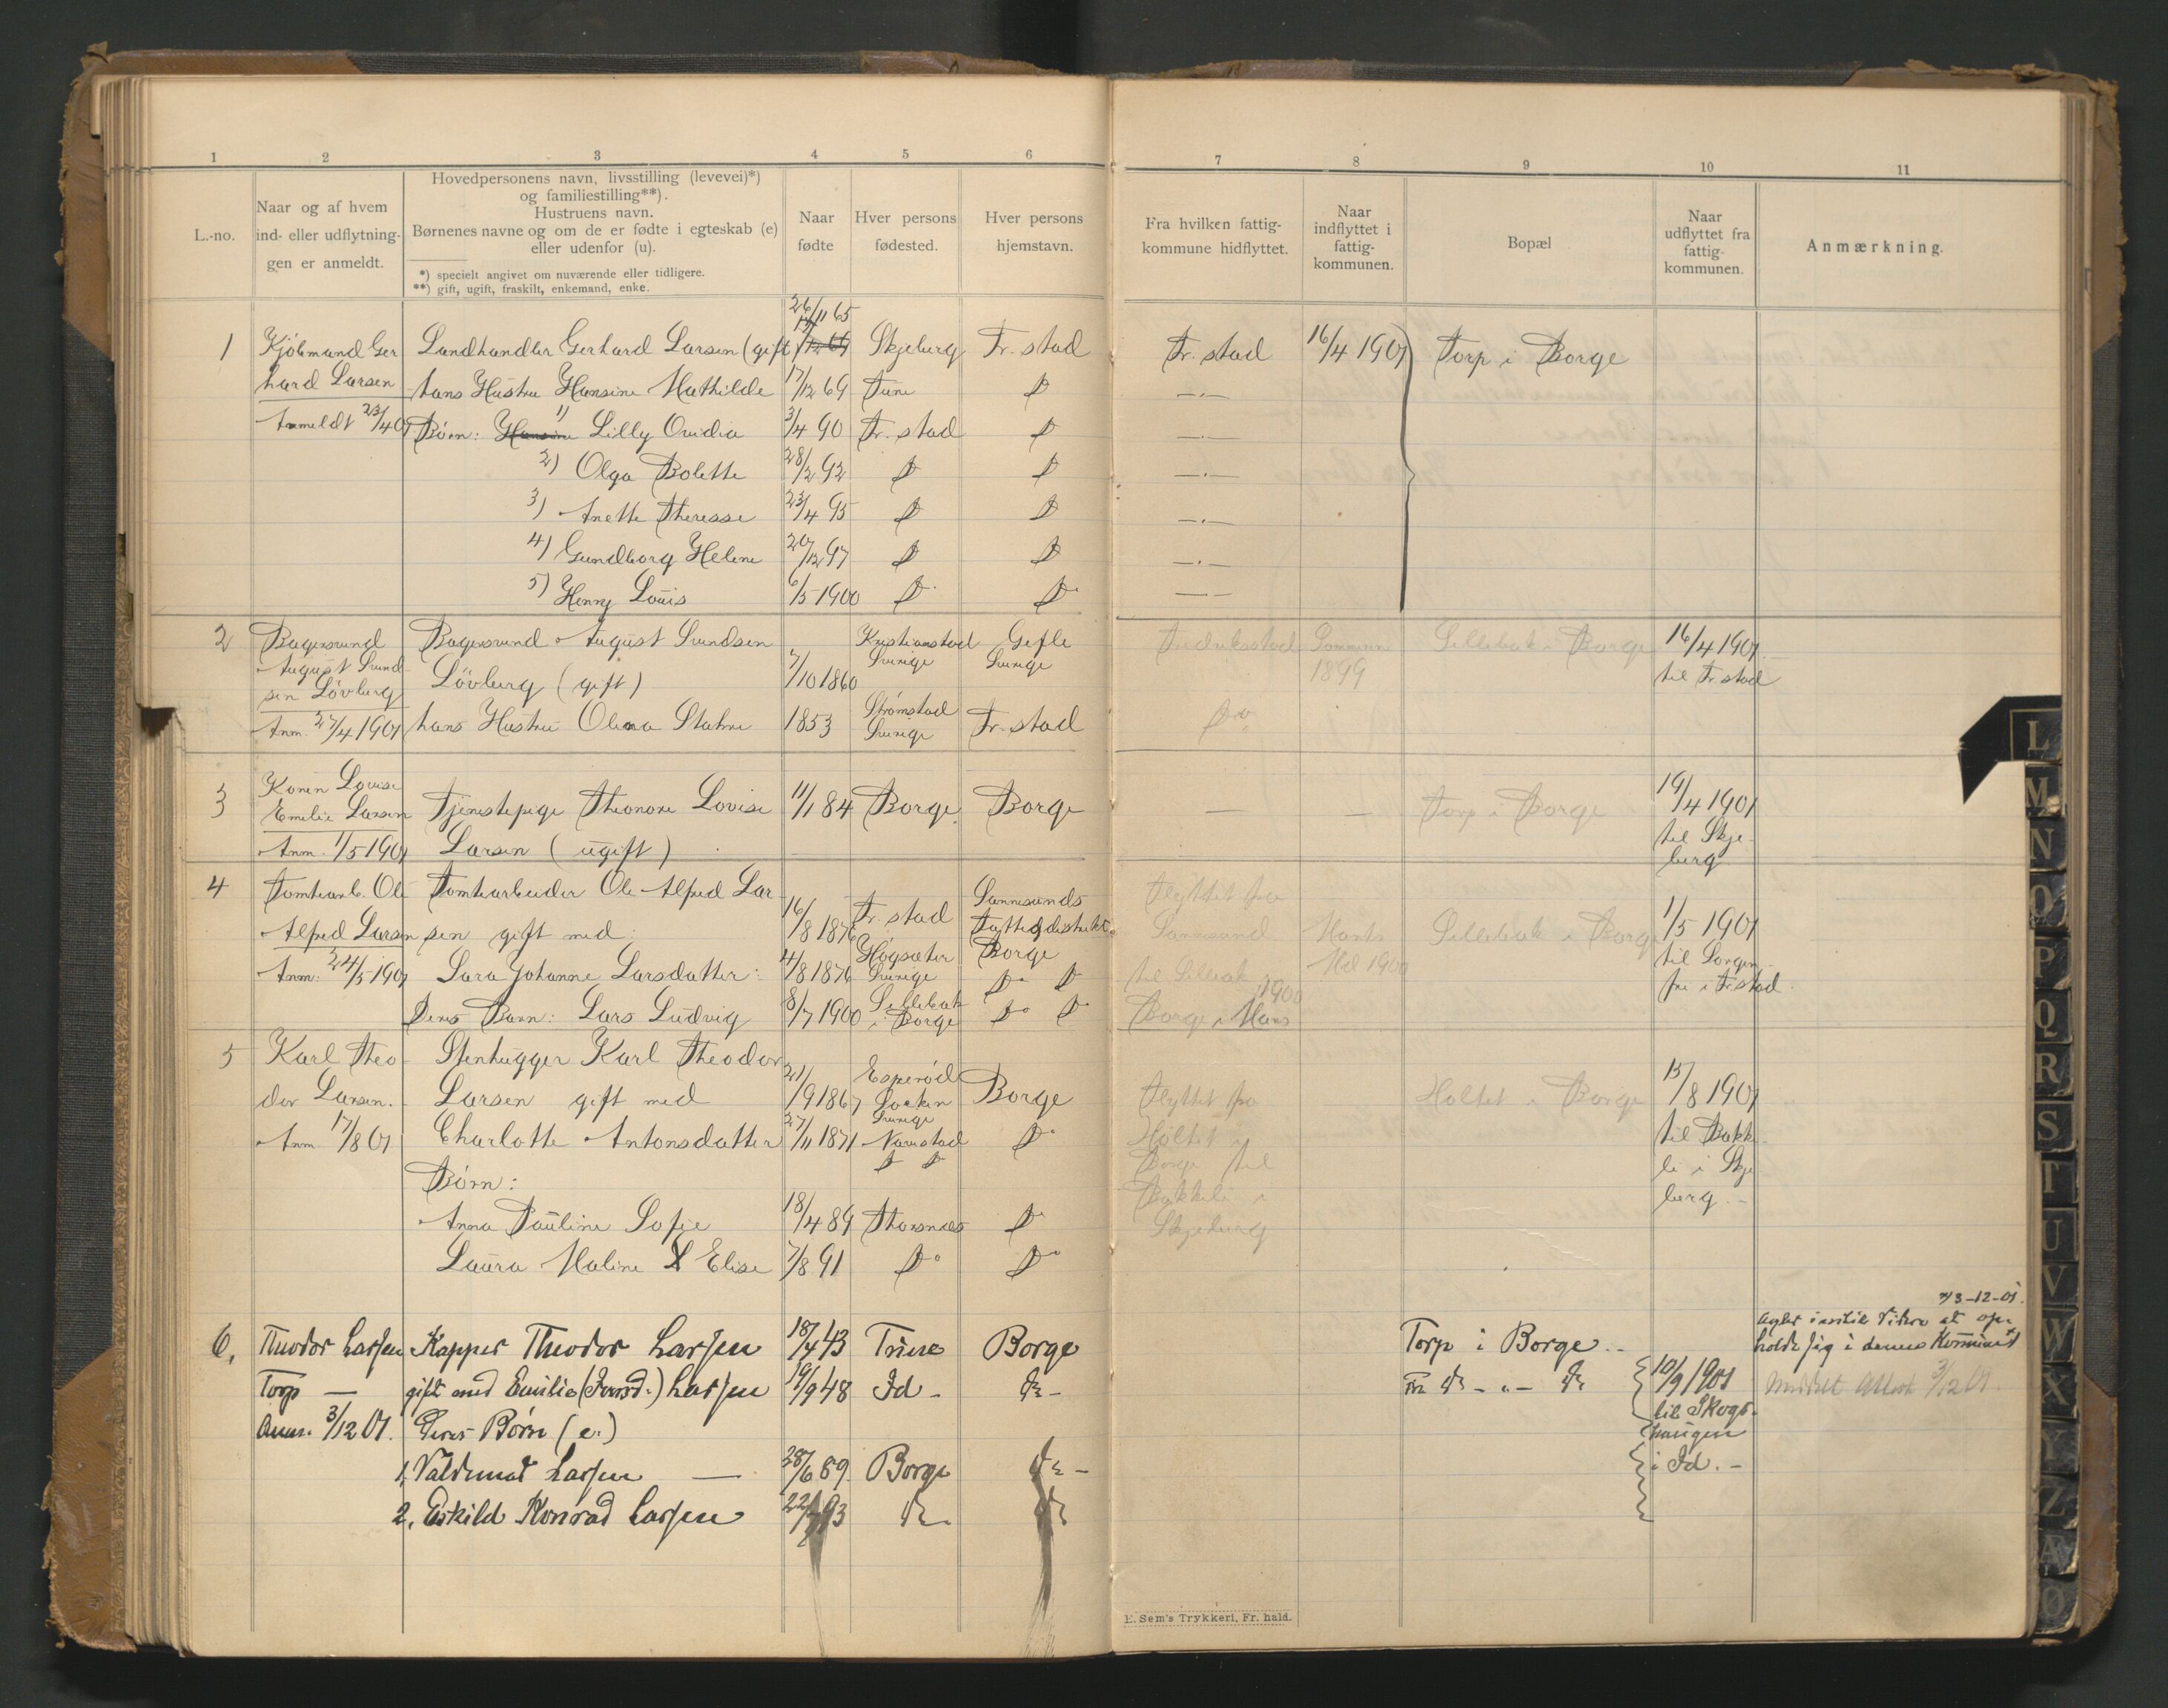 1 2 3 4 5 6 7 8 9 10 11
L.-no.
Naar og af hvem
ind- eller udflytnin-
gen er anmeldt.
Hovedpersonens navn, livsstilling (levevei)*)
og familiestilling**).
Hustruens navn.
Børnenes navne og om de er fødte i egteskab (e)
eller udenfor (u).
*) specielt angivet om nuværende eller tidligere.
**) gift, ugift, fraskilt, enkemand, enke.
Naar
fødte
Hver persons
fødested.
Hver persons
hjemstavn.
Fra hvilken fattig-
kommune hidflyttet.
Naar
indflyttet i
fattig-
kommunen.
Bopæl
Naar
udflyttet fra
fattig-
kommunen.
Anmærkning.
26/11 65
1 Kjöbmand Ger Landhandler Gerhard Larsen (gift) Skjeberg Fr. stad Fr. stad 16/4 1901 Torp i Borge
hard Larsen hans Hustru Hansine Mathilde 17/12 69 Tune Do —.—
Anmeldt 23/4 01 Börn: Hansine 1) Lilly Ovidia 3/4 90 Fr. stad Do —.—
2) Olga Bolette 28/2 92 Do Do —.—
3) Anette Theresse 23/4 95 Do Do —.—
4) Gundborg Helene 20/12 97 Do Do —.—
5) Henry Louis 6/5 1900 Do Do —.—
2 Bagersvend Bagersvend August Svendsen Kristianstad Gefle Fredriksstad Sommeren Sellebak i Borge 16/4 1901
August Svend- Lövberg (gift) 7/10 1860 Sverige Sverige 1899 til Fr. stad
sen Lövberg
Anm. 27/4 1901 hans Hustru Olena Stahre 1853 Strömstad Sverige Fr. stad Do
3 Konen Lovise
Emelie Larsen Tjenestepige Theonore Lovise 11/1 84 Borge Borge — — Torp i Borge 19/4 1901
Anm. 1/5 1901 Larsen (ugift) til Skje-
berg
4 Tomtearb. Ole Tomtearbeider Ole Alfred Lar 16/8 1876 Fr. stad Sannesunds Flyttet fra
Alfred Larsen sen gift med: distrikt Sannesund Sellebak i Borge 1/5 1901
Anm: 24/5 1901 Sara Johanne Larsdatter: 4/8 1876 Högsæter Sverige Borge Do Do til Sellebak i 1900 til Sorgen-
fri i Fr. stad
Deres Barn: Lars Ludvig 8/7 1900 Sellebak i Borge Do Do Borge i
5 Karl Theo- Stenhugger Karl Theodor
dor Larsen. Larsen gift med 21/9 1867 Socken Sverige Borge Flyttet fra Holtet i Borge 15/8 1901
Anm. 17/8 01 Charlotte Antonsdatter 27/11 1871 Naverstad Do Holtet i til Bakke-
Do Do Borge til li i Skje
Börn: Bakkeli i berg.-
Anna Pauline Sofie 18/4 89 Thorsnæs Do Skjeberg
Laura Maline Elise 7/8 91 Do Do
3-12-01.
6. Theodor Larsen Kapper Theodor Larsen 18/4 43 Tune Borge Torp i Borge.- holde sig i denne Kommune
Torp — gift med Emilie Larsen 19/9 48 Id - do - 10/9 1901 3/12 01.
Anm. 3/12 01. Deres Börn (e.) til Skogs-
haugen
1. Valdemar Larsen — 28/6 89 Borge do - i Id.-
2. Eskild Konrad Larsen do. do
E. Sem's Trykkeri, Fr. hald.
L
M
N
O
P
Q
R
S
T
U
V
W
X
Y
Z
Æ
Ø